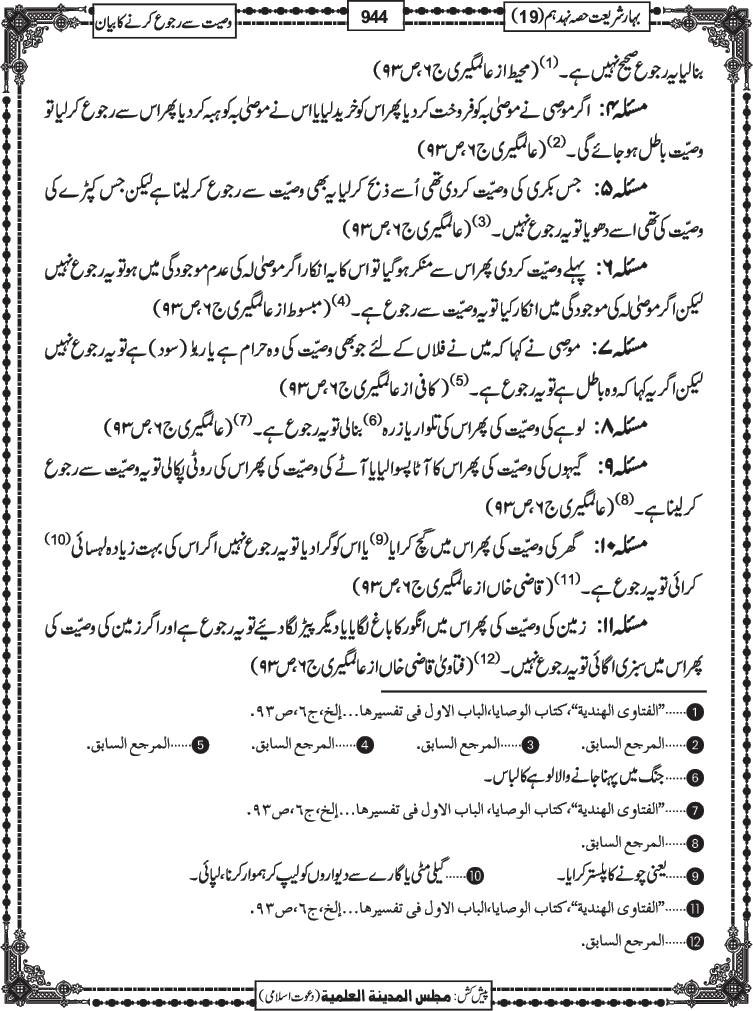 بہارِ شریعت حصہ نہدہم (19)
944
وصیت سے رجوع کرنے کا بیان
بنالیا یہ رجوع صحیح نہیں ہے۔(1) (محیط از عالمگیری ج۶،ص۹۳)
مسئلہ ۴: اگر موصِی نے موصٰی بہ کو فروخت کر دیا پھر اس کو خرید لیا یا اس نے موصٰی بہ کو ہبہ کر دیا پھر اس سے رجوع کر لیا تو
وصیّت باطل ہو جائے گی۔(2) (عالمگیری ج۶،ص۹۳)
مسئلہ ۵: جس بکری کی وصیّت کر دی تھی اُسے ذبح کر لیا یہ بھی وصیّت سے رجوع کر لینا ہے لیکن جس کپڑے کی
وصیّت کی تھی اسے دھویا تو یہ رجوع نہیں۔(3) (عالمگیری ج۶،ص۹۳)
مسئلہ ۶: پہلے وصیّت کر دی پھر اس سے منکر ہو گیا تو اس کا یہ انکار اگر موصٰی لہ کی عدم موجودگی میں ہو تو یہ رجوع نہیں
لیکن اگر موصٰی لہ کی موجودگی میں انکار کیا تو یہ وصیّت سے رجوع ہے۔(4) (مبسوط از عالمگیری ج۶،ص۹۳)
مسئلہ ۷: موصی نے کہا کہ میں نے فلاں کے لئے جو بھی وصیّت کی وہ حرام ہے یا ربوٰ (سود) ہے تو یہ رجوع نہیں
لیکن اگر یہ کہا کہ وہ باطل ہے تو یہ رجوع ہے۔(5) (کافی از عالمگیری ج۶،ص۹۳)
مسئلہ ۸: لوہے کی وصیّت کی پھر اس کی تلوار یا زرہ(6) بنالی تو یہ رجوع ہے۔(7) (عالمگیری ج۶،ص۹۳)
مسئلہ ۹: گیہوں کی وصیّت کی پھر اس کا آٹا پسوالیا یا آٹے کی وصیّت کی پھر اس کی روٹی پکالی تو یہ وصیّت سے رجوع
کر لینا ہے۔(8) (عالمگیری ج۶،ص۹۳)
مسئلہ ۱۰: گھر کی وصیّت کی پھر اس میں گچ کرایا(9) یا اس کو گرا دیا تو یہ رجوع نہیں اگر اس کی بہت زیادہ لہسائی(10)
کرائی تو یہ رجوع ہے۔(11) (قاضی خاں از عالمگیری ج۶،ص۹۳)
مسئلہ ۱۱: زمین کی وصیّت کی پھر اس میں انگور کا باغ لگایا یا دیگر پیڑ لگا دیئے تو یہ رجوع ہے اور اگر زمین کی وصیّت کی
پھر اس میں سبزی اگائی تو یہ رجوع نہیں۔(12) (فتاویٰ قاضی خاں از عالمگیری ج۶،ص۹۳)
1......"الفتاوی الھندیة"،کتاب الوصایا،الباب الاول فی تفسیرھا...إلخ،ج٦،ص٩٣.
2......المرجع السابق. 3......المرجع السابق. 4......المرجع السابق. 5......المرجع السابق.
6......جنگ میں پہنا جانے والا لوہے کا لباس۔
7......"الفتاوی الھندیة"،کتاب الوصایا، الباب الاول فی تفسیرھا...إلخ،ج٦،ص٩٣.
8......المرجع السابق.
9......یعنی چونے کا پلستر کرایا۔ 10......گیلی مٹی یا گارے سے دیواروں کو لیپ کر ہموار کرنا،لپائی۔
11......"الفتاوی الھندیة"،کتاب الوصایا،الباب الاول فی تفسیرھا...إلخ،ج٦،ص٩٣.
12......المرجع السابق.
پیش کش: مجلس المدینة العلمیة (دعوت اسلامی)